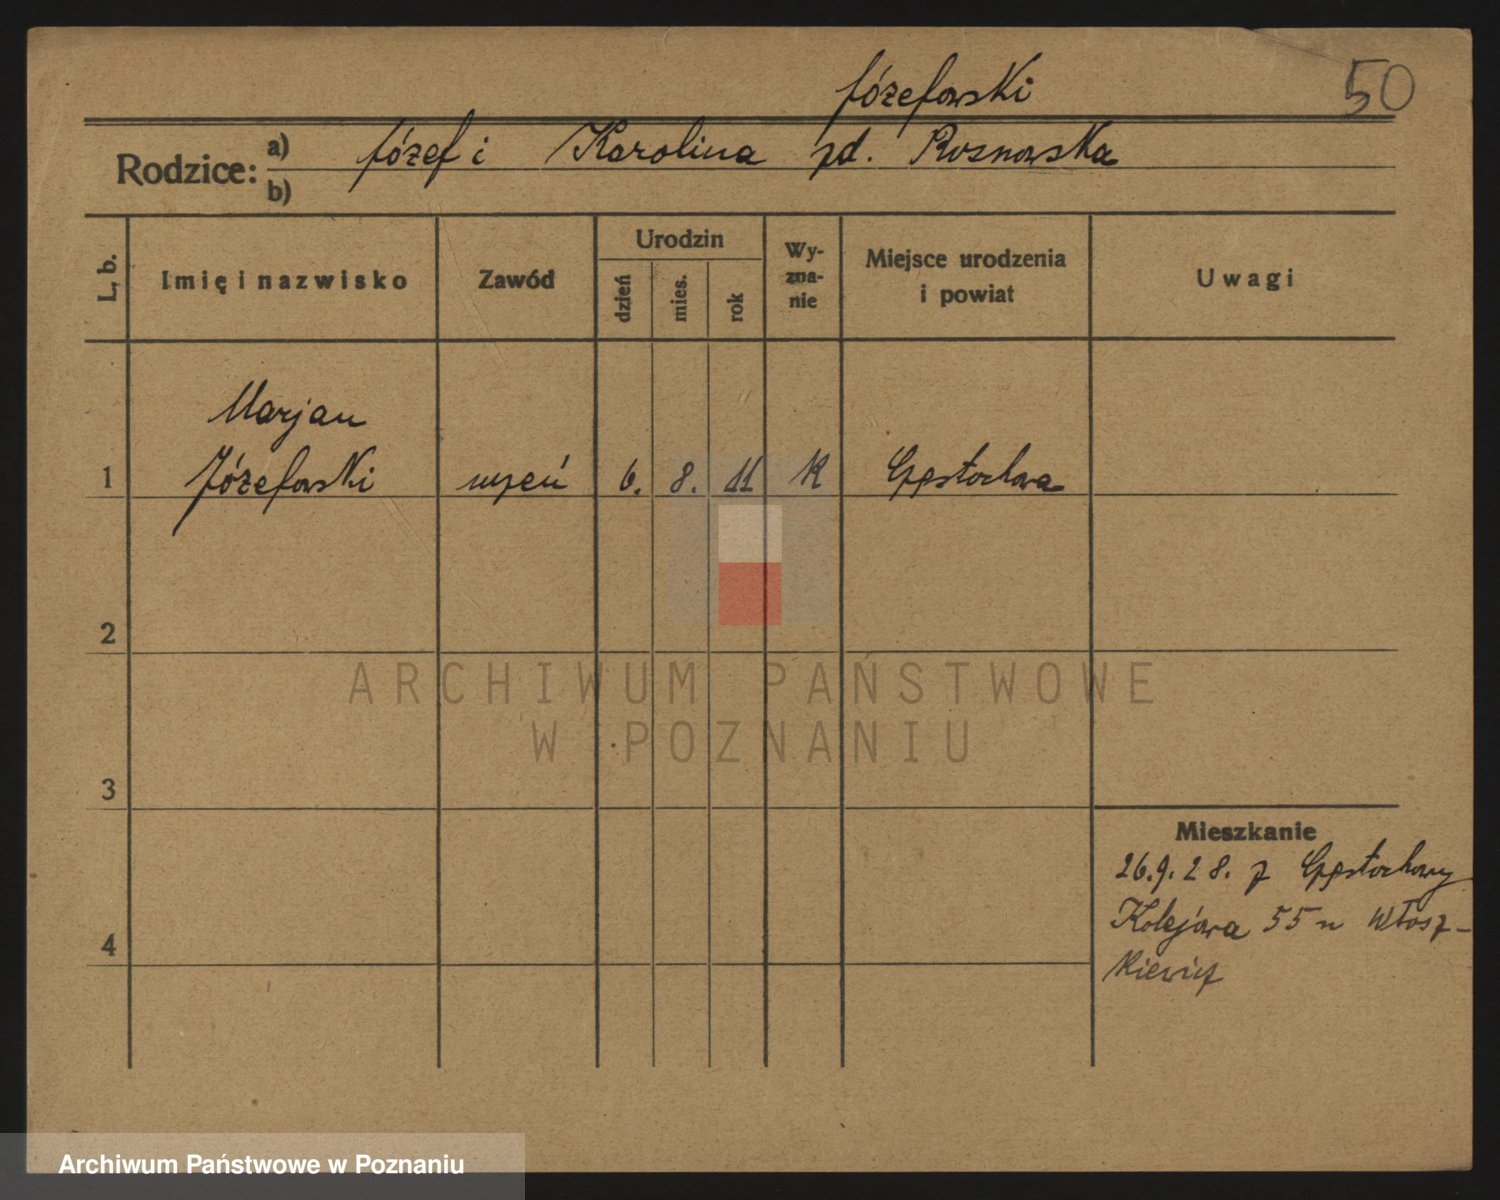 50
Józefowski
Rodzice: a) Józef i Karolina zd. Rosnowska
b)
L. b. Imię i nazwisko Zawód Urodzin dzień mies. rok Wy-zna-nie Miejsce urodzenia i powiat Uwagi
Marjan
1 Józefowski uczeń 6. 8. 11 K Częstochowa
2
3
Mieszkanie
26.9.28. z Częstochowy
Kolejowa 55 u Włosz-
4
kiewicz
ARCHIWUM PAŃSTWOWE
W POZNANIU
Archiwum Państwowe w Poznaniu